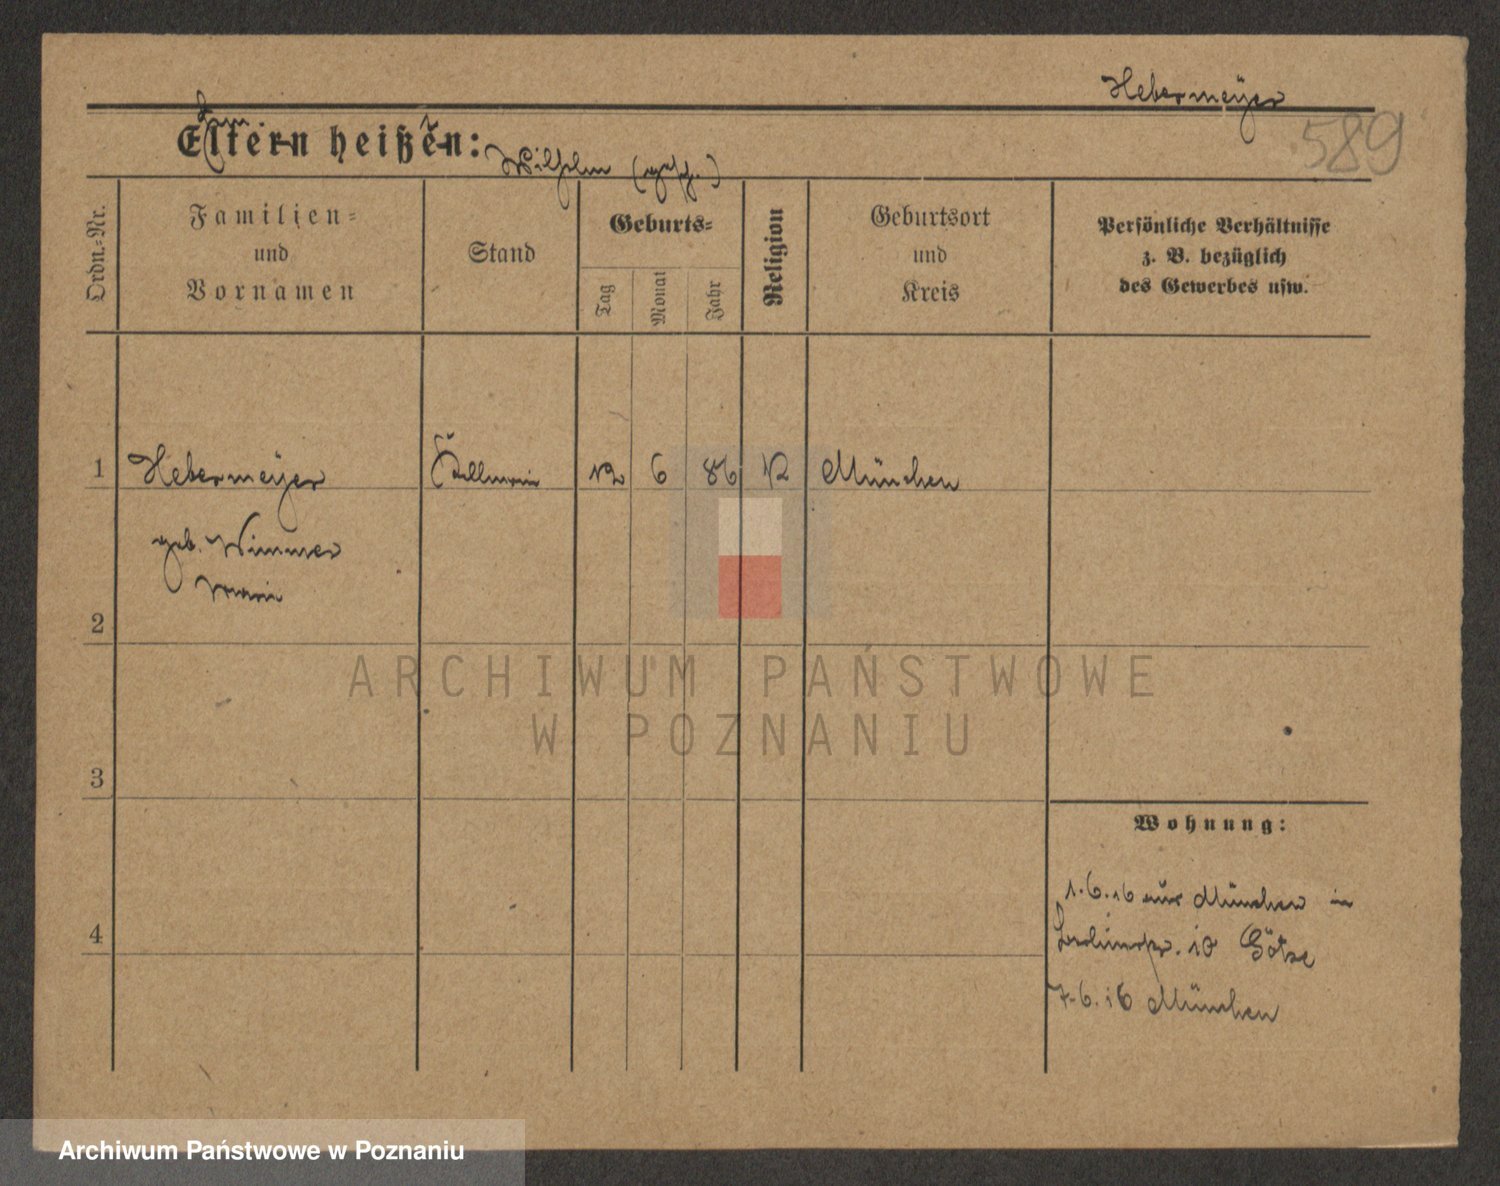 Hebermeyer
589
Eltern heißen: Wilhelm (gesch.)
Ordn.=Nr.
Familien=
und
Vornamen
Stand
Geburts=
Tag
Monat
Jahr
Religion
Geburtsort
und
Kreis
Persönliche Verhältnisse
z. B. bezüglich
des Gewerbes usw.
1 Hebermeyer 12 6 86 München
geb. Wimmer
Marie
2
3
4
Wohnung:
1.6.16 aus München in
10 Götze
7.6.16 München
ARCHIWUM PAŃSTWOWE
W POZNANIU
Archiwum Państwowe w Poznaniu